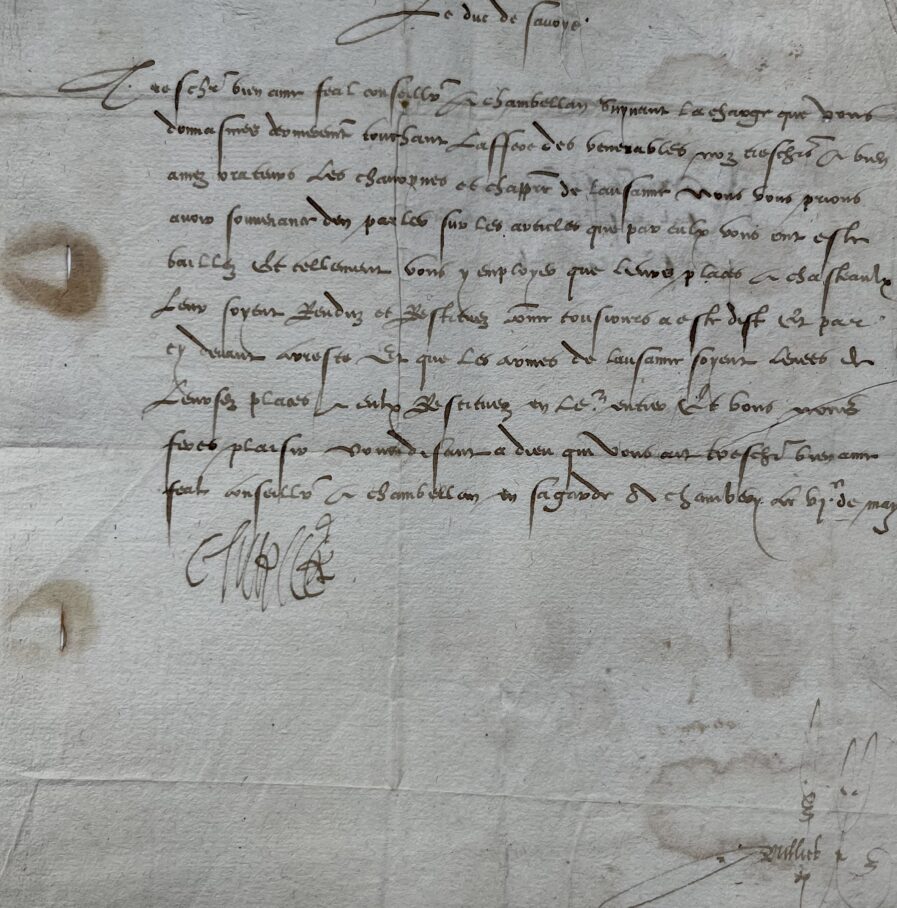 Le duc de savoye.
Treschr bien ame feal conseillr & chambellan Suyvant la charge que vous
donnasmes touchant Laffere des venerables noz treschrs & bien
amez orateurs Les chanoynes et chappre de lausanne Nous vous prions
avoir souvenance den parler sur les articles que par eulx vous ont este
baillez Et tellement vous y employer que leurs places & chasteaulx
Leur soyent Renduz et Restituez come tousiours a este dist Et par
cy devant Et que les armes de lausanne soyent levees de
Leursd places & eulx Restituez en leur entier Et vous nous
feres plaisir Vous disant a dieu qui vous ait treschr bien ame
feal conseillr & chambellan en sa garde A chambery le vjr de may
Charles
Vulliet